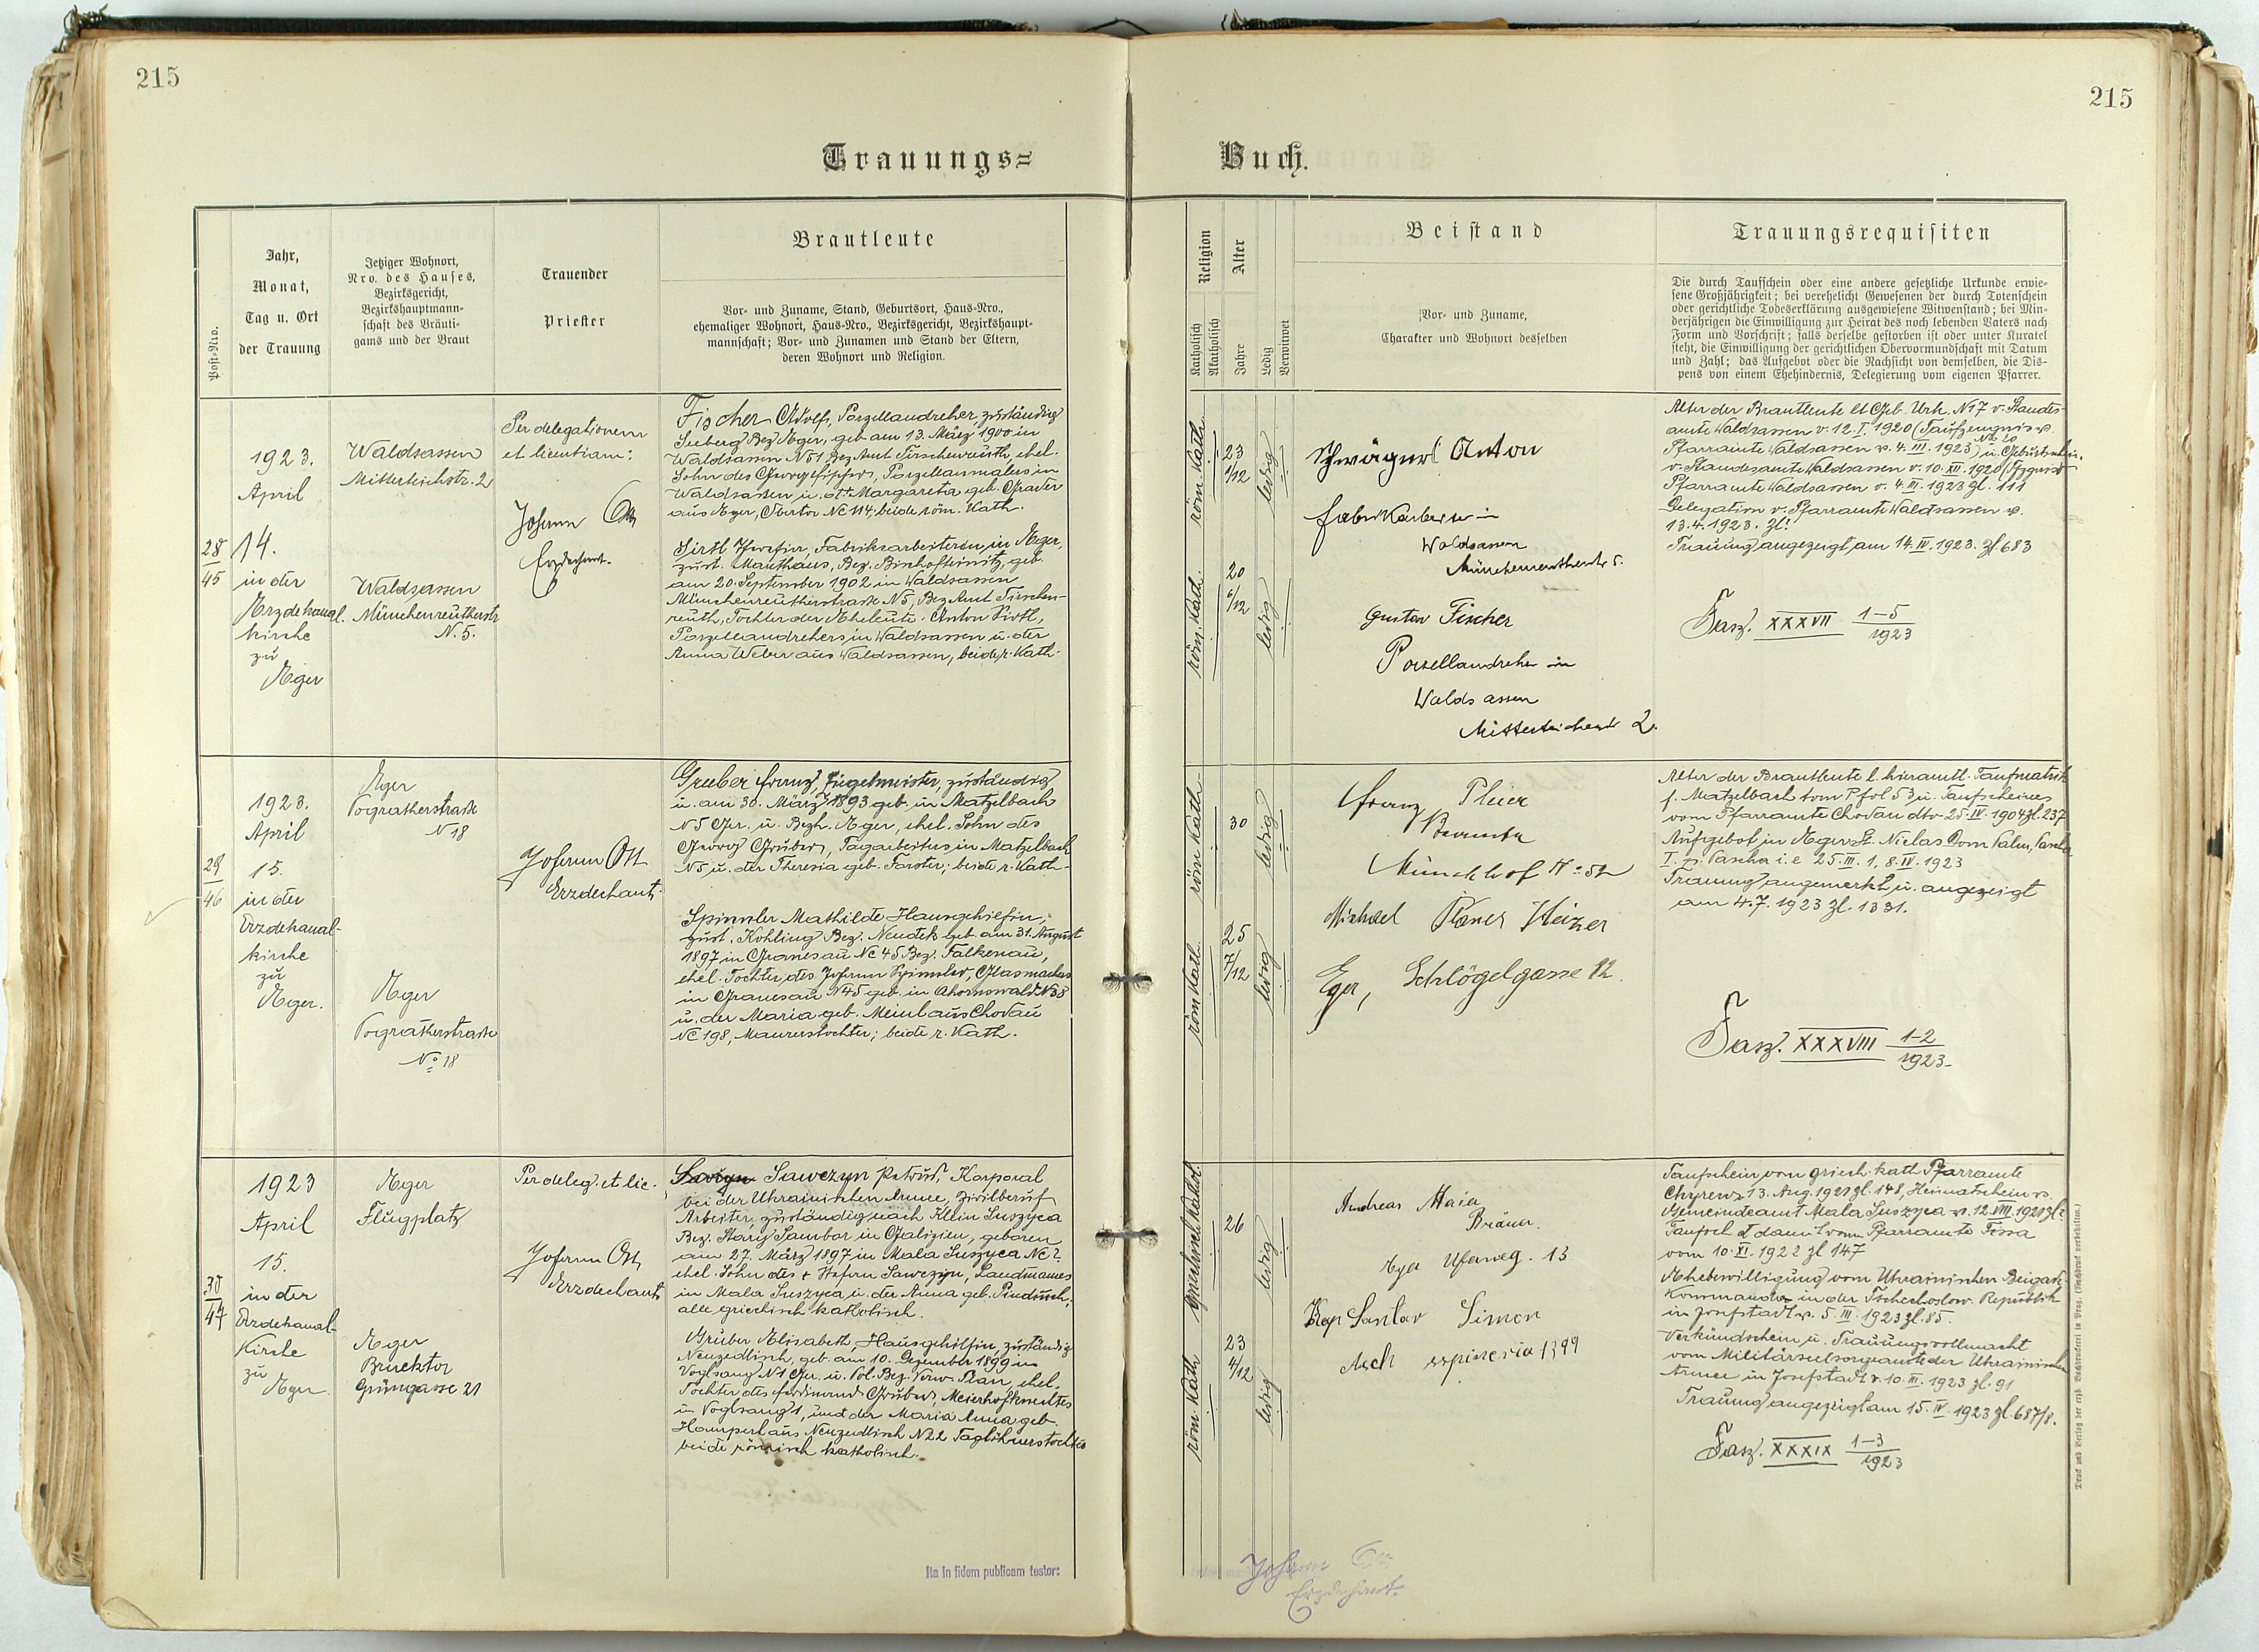 215
215
Trauungs=
Buch.
Post-Nro.
Jahr,
Monat,
Tag u. Ort
der Trauung
Jetziger Wohnort,
Nro. des Hauses,
Bezirksgericht,
Bezirkshauptmann-
schaft des Bräuti-
gams und der Braut
Trauender
Priester
Brautleute
Vor- und Zuname, Stand, Geburtsort, Haus-Nro.,
ehemaliger Wohnort, Haus-Nro., Bezirksgericht, Bezirkshaupt-
mannschaft; Vor- und Zunamen und Stand der Eltern,
deren Wohnort und Religion.
Religion
Katholisch
Akatholisch
Alter
Jahre
Ledig
Verwitwet
Beistand
Vor- und Zuname,
Charakter und Wohnort desselben
Trauungsrequisiten
Die durch Taufschein oder eine andere gesetzliche Urkunde erwie-
sene Großjährigkeit; bei verehelicht Gewesenen der durch Totenschein
oder gerichtliche Todeserklärung ausgewiesene Witwenstand; bei Min-
derjährigen die Einwilligung zur Heirat des noch lebenden Vaters nach
Form und Vorschrift; falls derselbe gestorben ist oder unter Kuratel
steht, die Einwilligung der gerichtlichen Obervormundschaft mit Datum
und Zahl; das Aufgebot oder die Nachsicht von demselben, die Dis-
pens von einem Ehehindernis, Delegierung vom eigenen Pfarrer.
28
45
1923.
April
14.
in der
Erzdekanal.
kirche
zu
Eger
Waldsassen
Mitterteichstr. 2
Waldsassen
Münchenreutherstr
N. 5.
Per delegationem
et licentiam:
Johann Ott
Erzdechant.
Fischer Adolf, Porzellandreher, zuständig
Seeberg Bez Eger, geb. am 13. März 1900 in
Waldsassen N 51 Bez Amt Tirschenreuth, ehel.
Sohn des Georg Fischer, Porzellanmalers in
Waldsassen u. der Margareta geb. Grader
aus Eger, Obertor NC 114; beide röm. Kath.
Sirtl Josefine, Fabriksarbeiterin, in Eger,
zust. Mauthaus, Bez. Bischofteinitz, geb.
am 20. September 1902 in Waldsassen
Münchenreutherstraße N 5, Bez Amt Tirschen-
reuth, Tochter der Eheleute Anton Sirtl,
Porzellandrehers in Waldsassen u. der
Anna Weber aus Waldsassen, beide r. Kath.
röm. Kath.
23
1/12
ledig
röm. Kath.
20
6/12
ledig
Schwägerl Anton
Fabrikarbeiter in
Waldsassen
Münchenreutherstr 5.
Gustav Fischer
Porzellandreher in
Waldsassen
Mitterteicherstr 2.
Alter der Brautleute lt Geb. Urk. N 17 v. Standes-
amte Waldsassen v. 12. I. 1920 (Taufzeugnis v.
Pfarramte Waldsassen v. 4. III. 1923) u. Geburtsschein
v. Standesamte Waldsassen v. 10. XII. 1920
Pfarramte Waldsassen v. 4. III. 1923 zl. 111
Delegation v. Pfarramte Waldsassen v.
13.4.1923. zl:
Trauung angezeigt am 14. IV. 1923. zl. 683
Fasz. XXXVII 1-5
1923
29
46
1923.
April
15.
in der
Erzdekanal-
kirche
zu
Eger.
Eger
Pogratherstraße
N 18
Eger
Pogratherstraße
No 18
Johann Ott
Erzdechant.
Gruber Franz, Ziegelmeister, zuständig
u. am 30. März 1893 geb. in Matzelbach
N 5 Ger. u. Bezh. Eger, ehel. Sohn des
Georg Gruber, Tagarbeiters in Matzelbach
N 5 u. der Theresia geb. Forster; beide r. Kath.
Spinnler Mathilde Hausgehilfin,
zust. Kohling Bez. Neudek geb. am 31. August
1897 in Granesau NC 45 Bez. Falkenau,
ehel. Tochter des Johann Spinnler, Glasmachers
in Granesau N 45 geb. in Ahornswald N 38
u. der Maria geb. Meinl aus Chodau
NC 198, Maurerstochter; beide r. Kath.
röm Kath
30
ledig
röm Kath.
25
7/12
ledig
Franz Pleier
Beamter
Münchhof No 52
Michael Planer Heizer
Eger, Schlögelgasse 12
Alter der Brautleute l. hieramtl. Taufmatrik
f. Matzelbach tom P fol 53 u. Taufscheines
vom Pfarramte Chodau dto 25. IV. 1904 zl. 237
Aufgebot in Eger St. Niclas Dom Palm, Pascha
I. p. Pascha i. e 25. III. 1, 8. IV. 1923
Trauung angemerkt u. angezeigt
am 4.7. 1923 zl. 1331.
Fasz. XXXVIII 1-2
1923
30
47
1923
April
15.
in der
Erzdekanal-
Kirche
zu
Eger
Eger
Flugplatz
Eger
Brucktor
Grüngasse 21
Per deleg. et lic.
Johann Ott
Erzdechant
Sawczyn Petrus, Korporal
bei der Ukrainischen Armee, Zivilberuf
Arbeiter, zuständig nach Klein Suszyca
Bez. Stary Sambor in Galizien, geboren
am 27. März 1897 in Mala Suszyca NC ?
ehel. Sohn des + Stefan Sawczyn, Landmannes
in Mala Suszyca u. der Anna geb.
alle griechisch katholisch.
Gruber Elisabeth, Hausgehilfin, zuständig
Neuzedlisch, geb. am 10. Dezember 1899 in
Voglsang N 1 Ger. u. Pol. Bez. Verw. Plan, ehel.
Tochter des Ferdinand Gruber, Meierhofknechtes
in Voglsang 1, und der Maria Anna geb.
Hamperl aus Neuzedlisch N 22 Taglöhnerstochter
beide römisch katholisch.
griechisch kathol.
26
ledig
röm. Kath
23
4/12
ledig
Andreas Maia
Bräuer.
Eger 13
Kop Santar Simon
Asch 1399
Taufschein vom griech. kath Pfarramte
Chyrew v. 13. Aug. 1921 zl. 148, Heimatschein v.
Gemeindeamt Mala Suszyca v. 12. VIII. 1921 zl ?
Taufsch d Braut vom Pfarramte Tissa
vom 10. XI. 1922 zl 147
Ehebewilligung vom Ukrainischen Brigade-
Kommando in der Tschechoslow. Republik
in Josefstadt v. 5. III. 1923 zl. 85.
Verkündschein u. Trauungsvollmacht
vom Militärseelsorgeamte der Ukrainischen
Armee in Josefstadt v. 10. III. 1923 zl. 91
Trauung angezeigt am 15. IV. 1923 zl. 687/8.
Fasz. XXXIX 1-3
1923
Ita in fidem publicam testor:
Johann Ott
Erzdechant.
Druck und Verlag der erzb. Buchdruckerei in Prag. (Nachdruck verboten.)